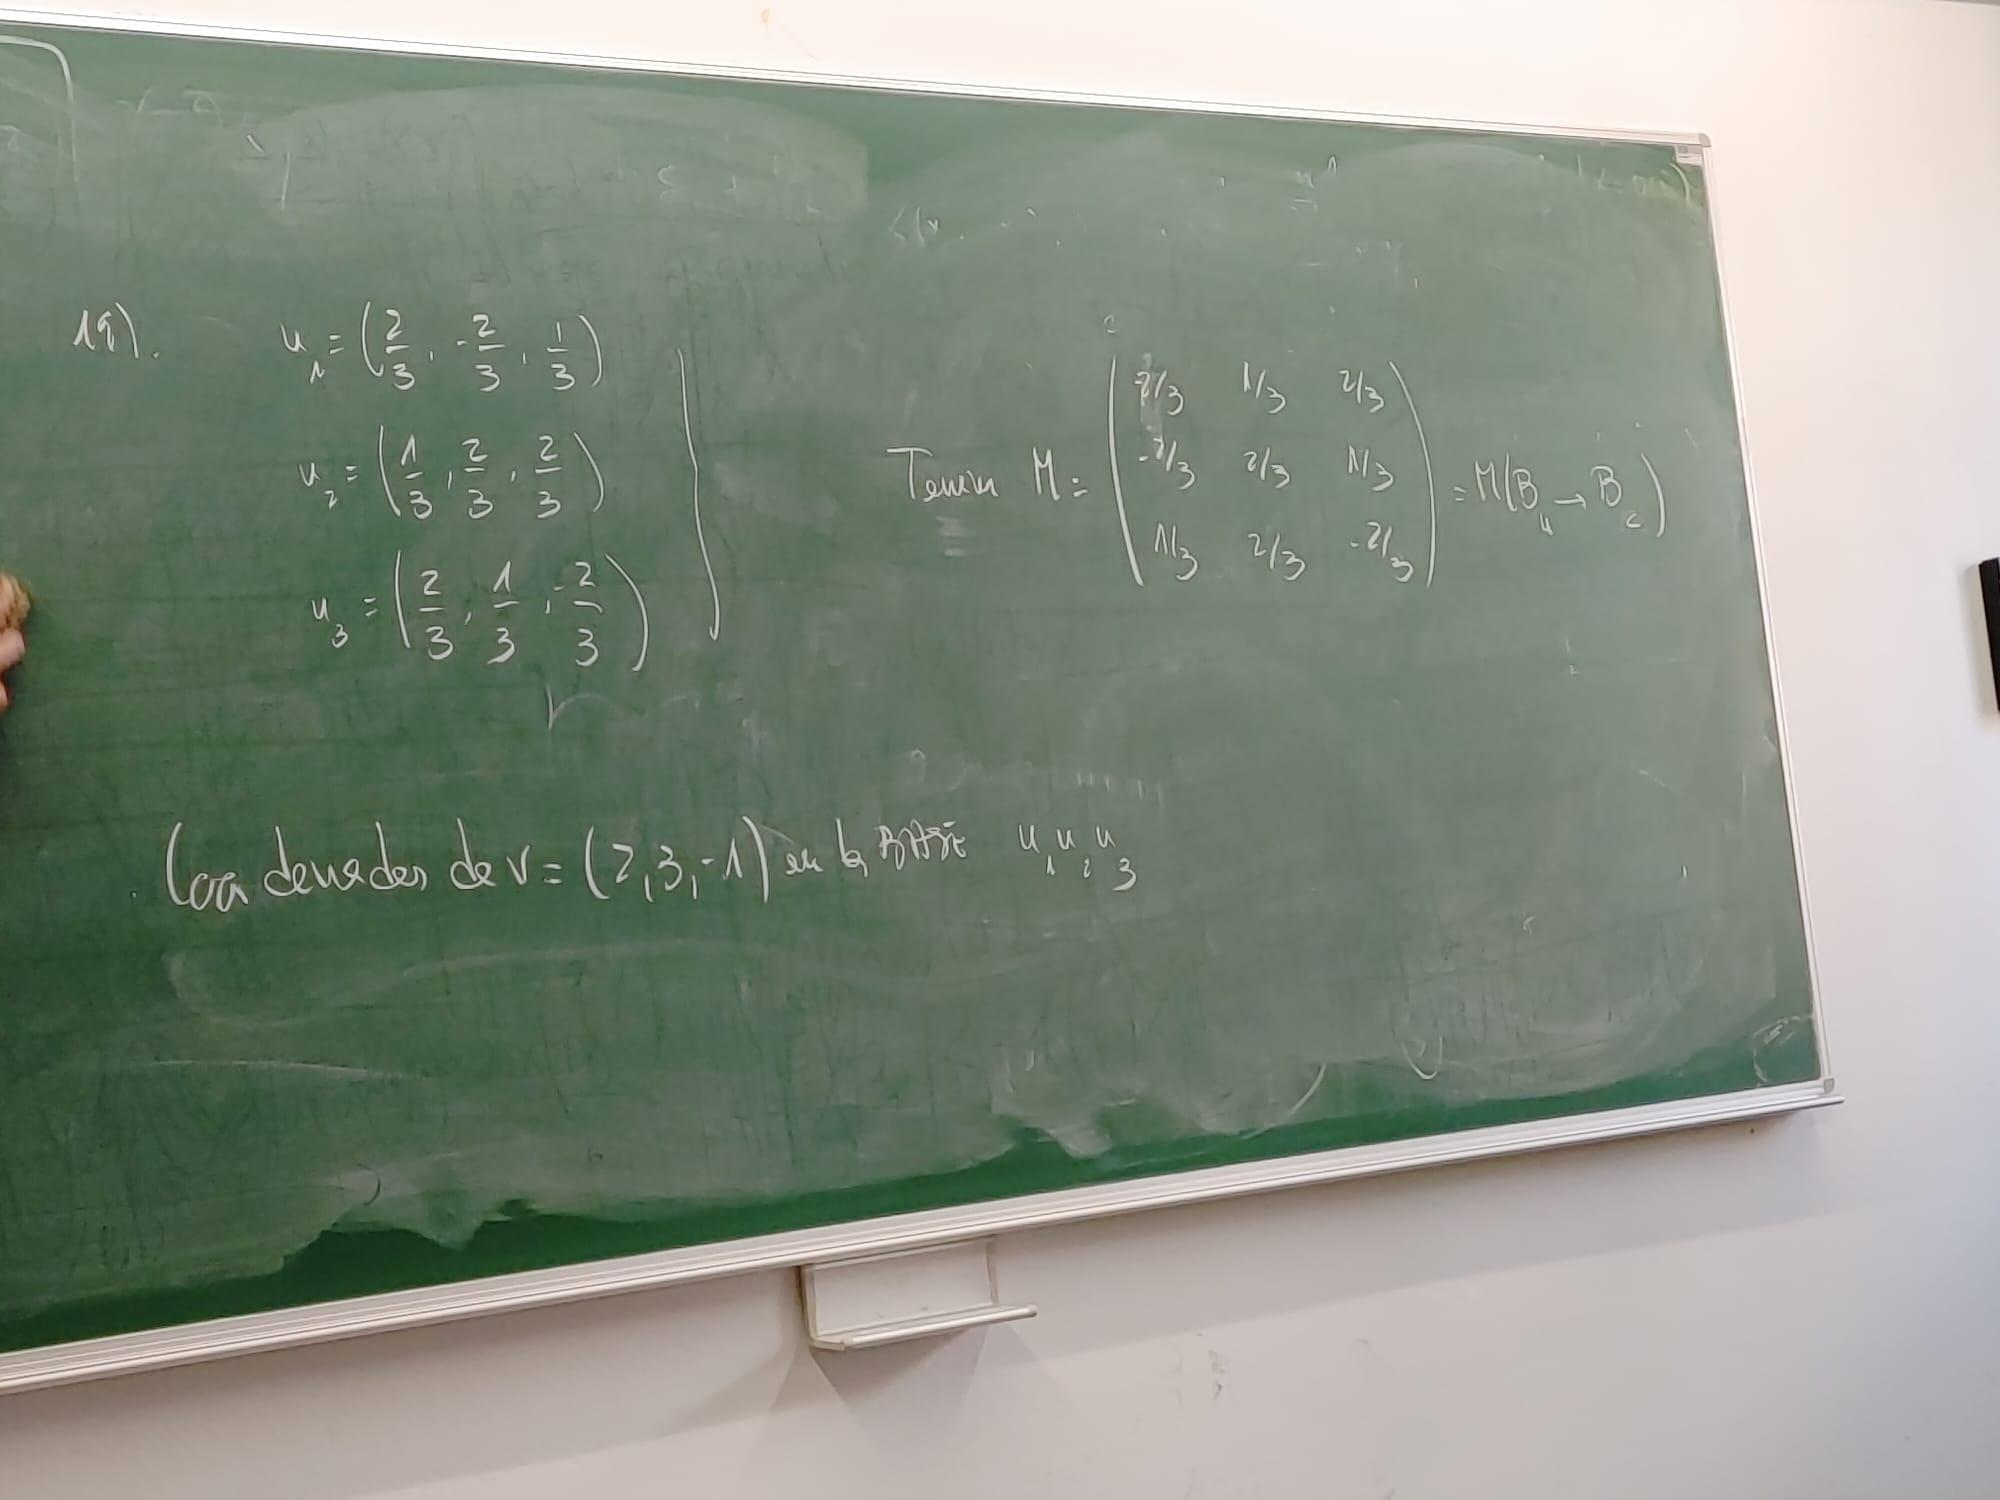 19).
u₁ = (2/3, -2/3, 1/3)
u₂ = (1/3, 2/3, 2/3)
u₃ = (2/3, 1/3, -2/3)
Tenim M = ( 2/3 1/3 2/3
-2/3 2/3 1/3
1/3 2/3 -2/3 ) = M(Bᵤ → B꜀)
Coordenades de v = (2, 3, -1) en la BASE u₁ u₂ u₃